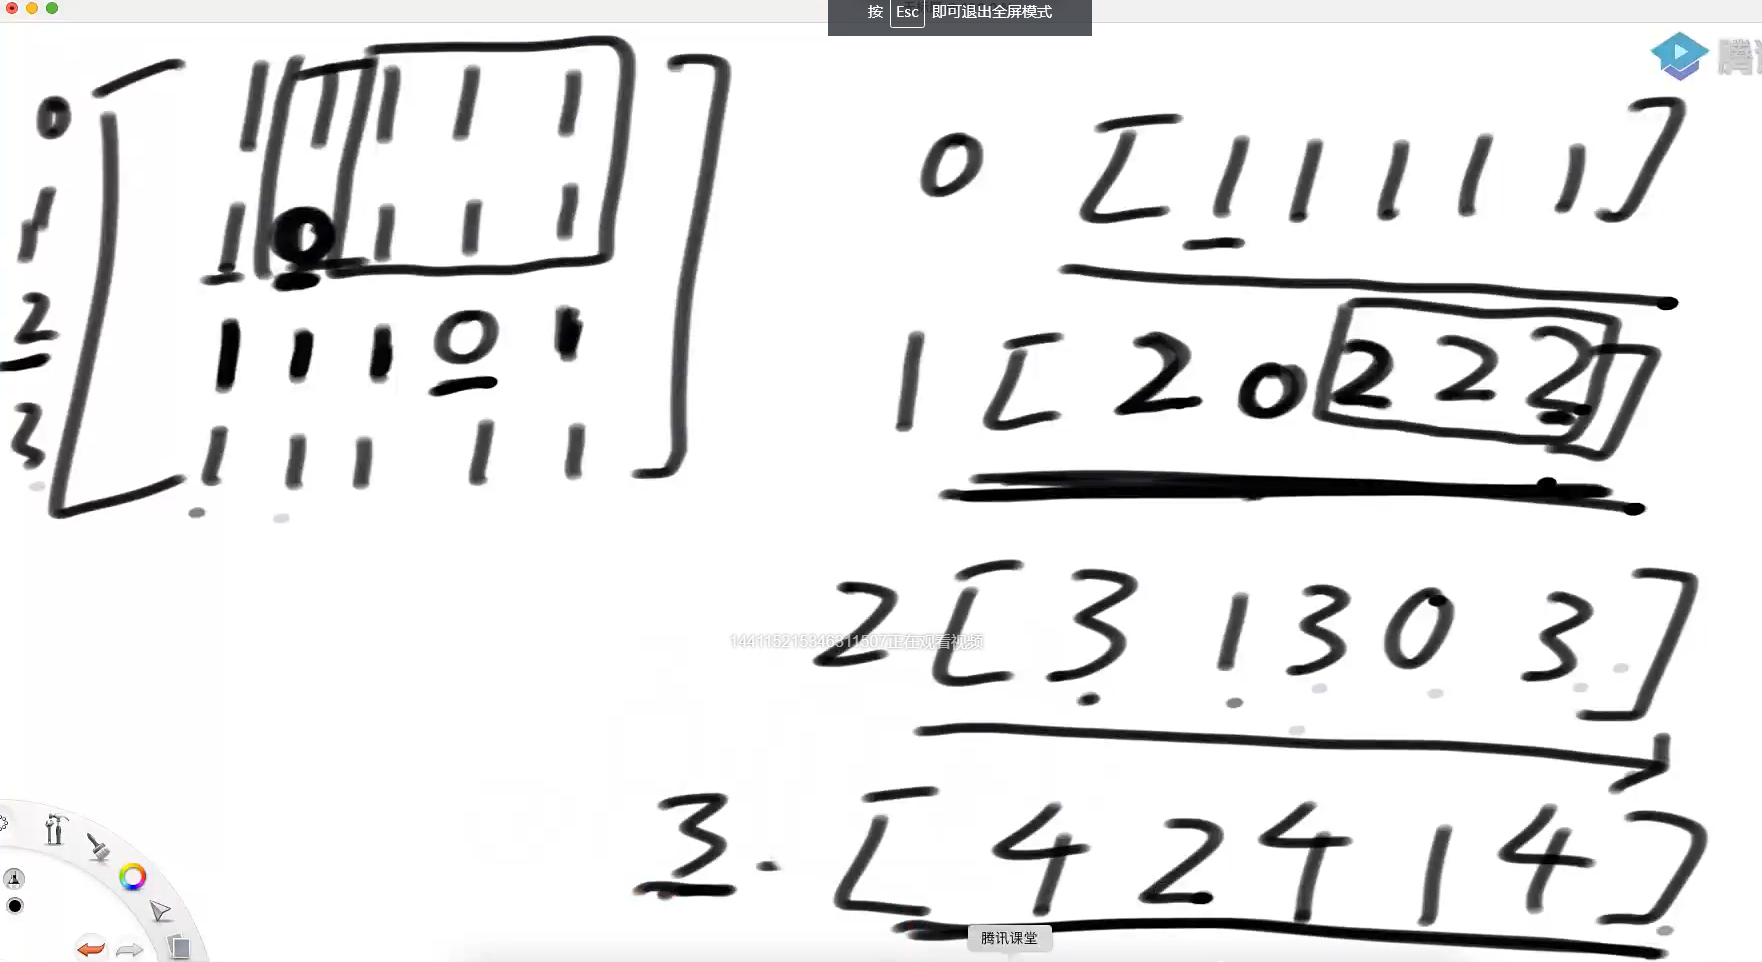 按 Esc 即可退出全屏模式
腾讯
0 1 1 1 1 1
1 1 0 1 1 1
2 1 1 1 0 1
3 1 1 1 1 1
0 [ 1 1 1 1 1 ]
1 [ 2 0 2 2 2 ]
2 [ 3 1 3 0 3 ]
144115215346311507正在观看视频
3. [ 4 2 4 1 4 ]
腾讯课堂